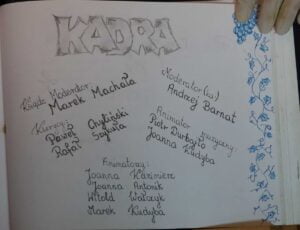 KADRA
Ksiądz Moderator
Marek Machała
Moderator(ka)
Andrzej Barnat
Klerycy:
Paweł Chyliński
Rafał Sykuła
Animator muzyczny:
Piotr Durbajło
Joanna Kudyba
Animatorzy:
Joanna Kazimierz
Joanna Antonik
Witold Wałczyk
Marek Kudyba